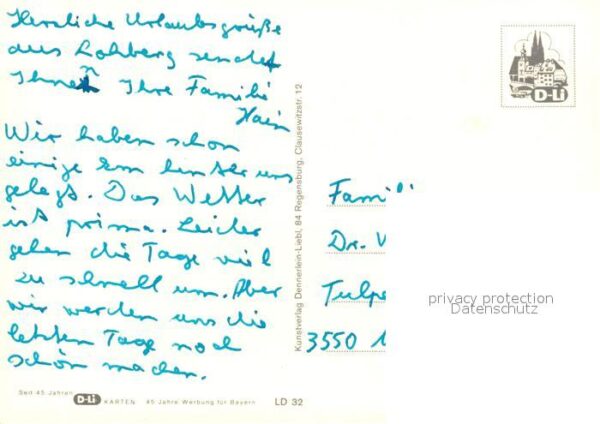 Herzliche Urlaubsgrüße
aus Lohberg sendet
Ihnen Ihre Familie
Hain
Wir haben schon
einige km hinter uns
gelegt. Das Wetter
ist prima. Leider
gehen die Tage viel
zu schnell um. Aber
wir werden uns die
letzten Tage noch
schön machen.
Seit 45 Jahren D-Li KARTEN 45 Jahre Werbung für Bayern LD 32
Kunstverlag Dennerlein-Liebl, 84 Regensburg, Clausewitzstr. 12
D-Li
Famili
Dr. V
Tulpe
3550
privacy protection
Datenschutz